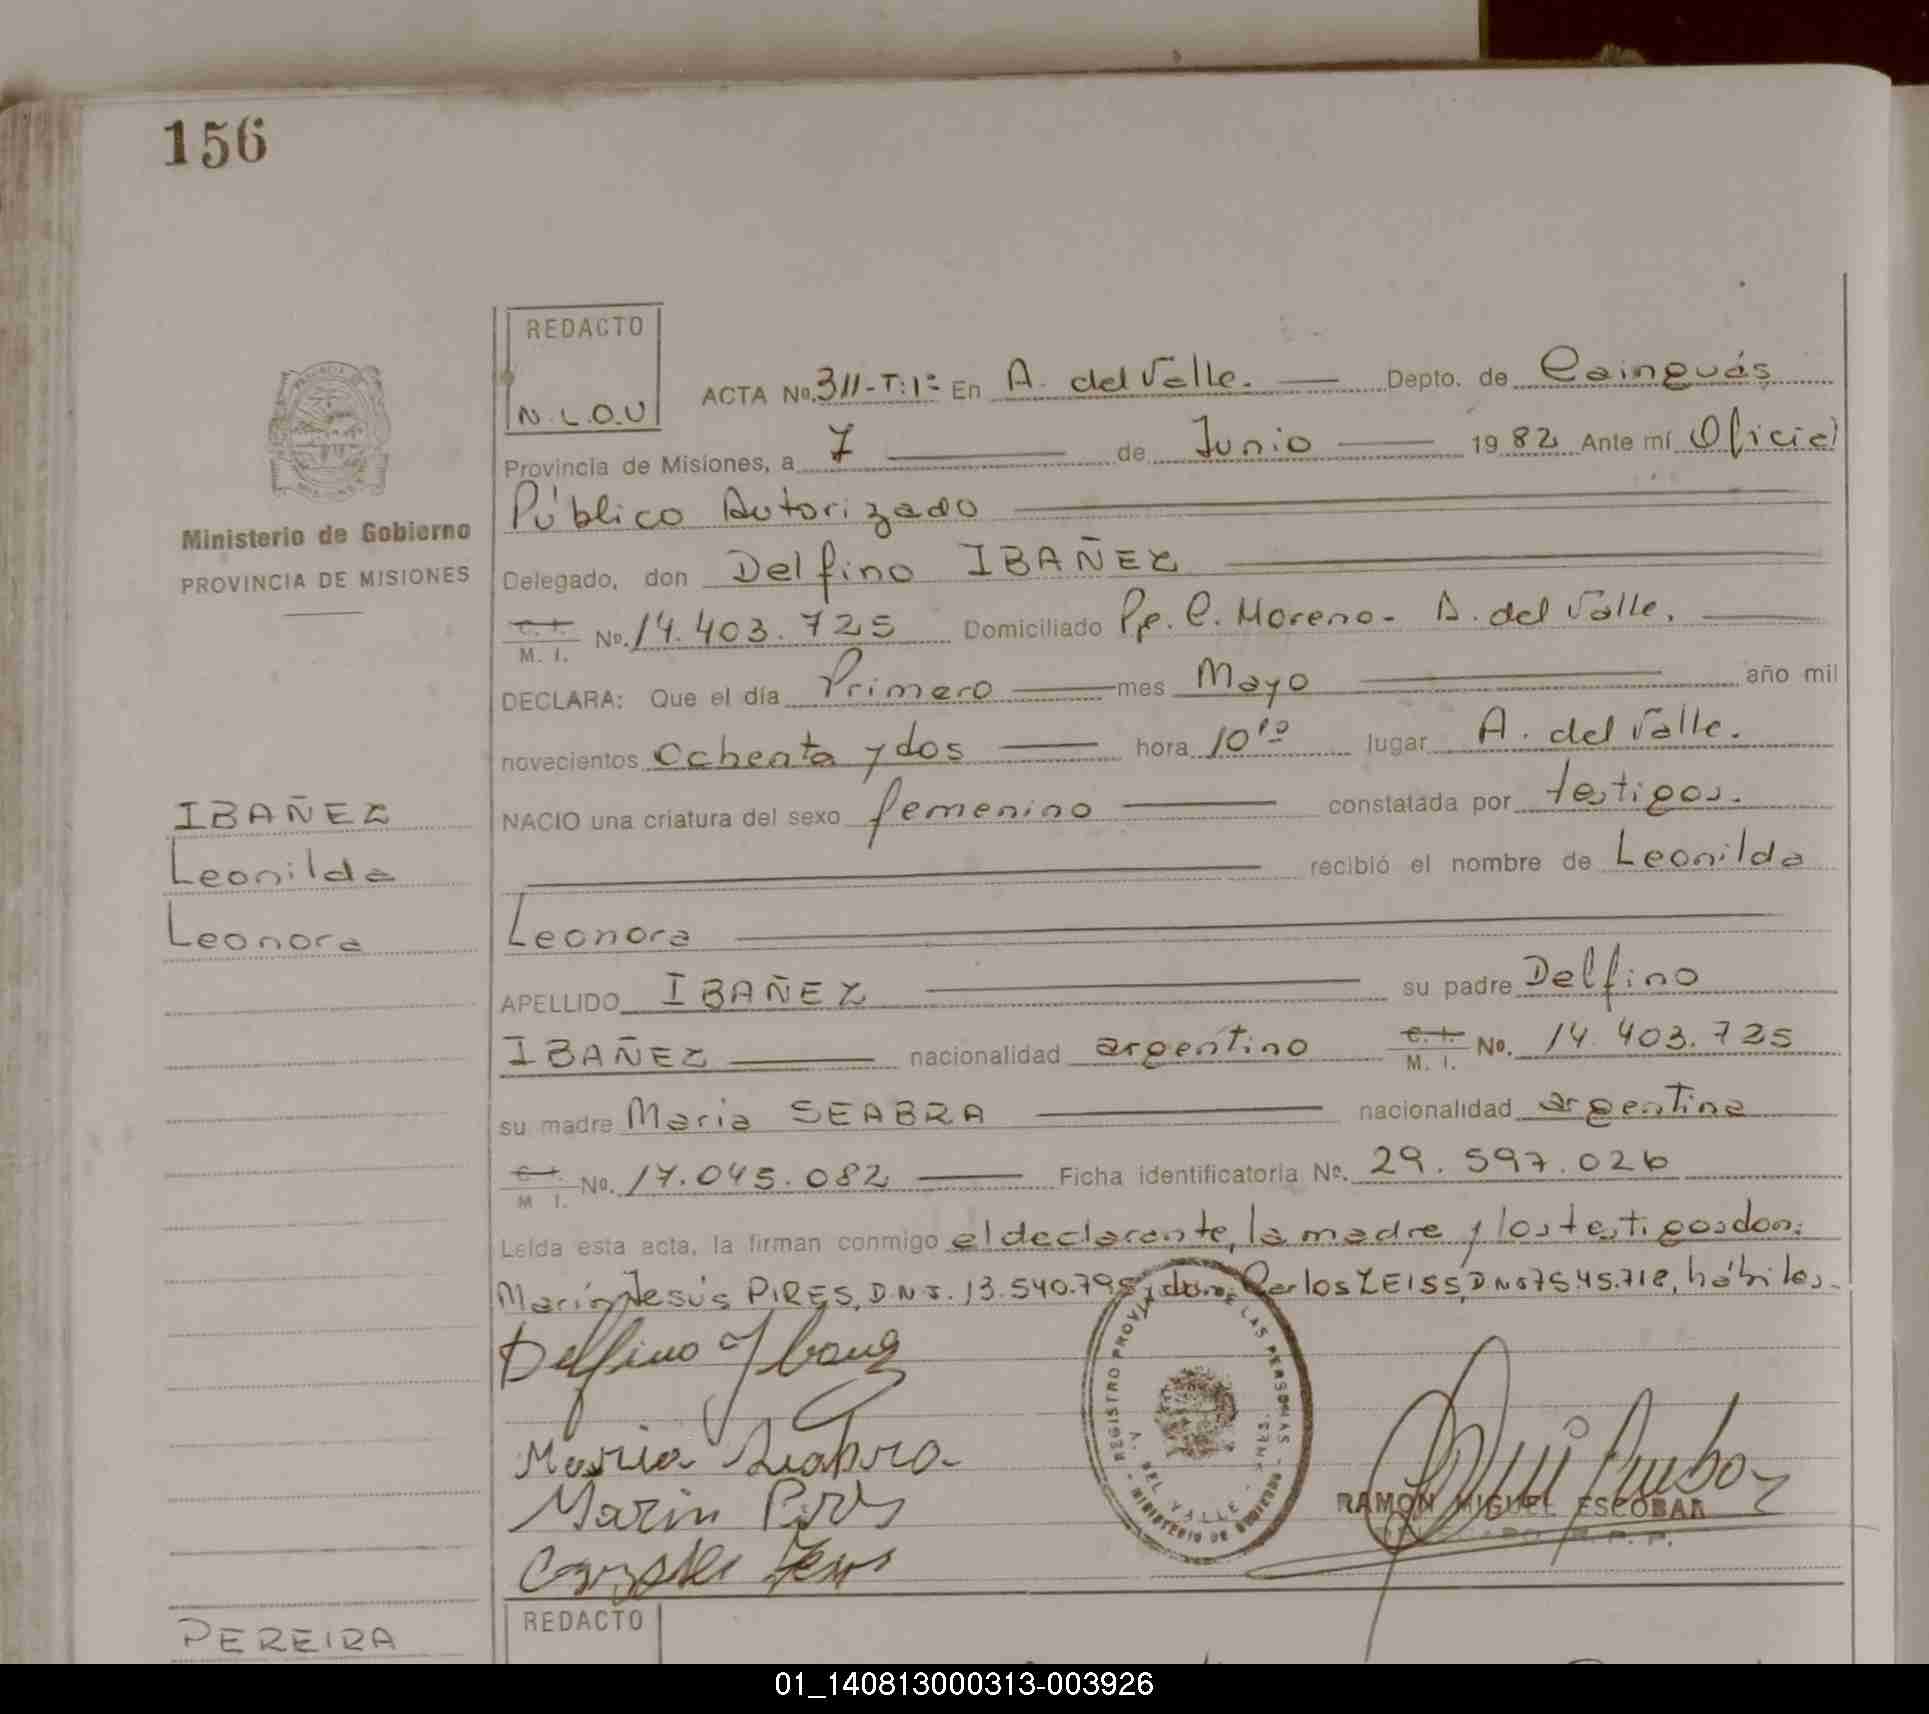 156
REDACTO
N.L.O.U
ACTA No. 311-T:1º En A. del Valle. Depto. de Cainguás
Provincia de Misiones, a 7 de Junio 1982 Ante mí Oficial
Público Autorizado
Ministerio de Gobierno
PROVINCIA DE MISIONES
Delegado, don Delfino IBAÑEZ
C. I.
M. I. No. 14.403.725 Domiciliado Pje. C. Moreno- A. del Valle.
DECLARA: Que el día Primero mes Mayo año mil
novecientos ochenta y dos hora 10 lugar A. del Valle.
IBAÑEZ
Leonilda
Leonora
NACIO una criatura del sexo femenino constatada por testigos.
recibió el nombre de Leonilda
Leonora
APELLIDO IBAÑEZ su padre Delfino
IBAÑEZ nacionalidad argentino C. I. M. I. No. 14.403.725
su madre Maria SEABRA nacionalidad argentina
C. I.
M I. No. 17.045.082 Ficha identificatoria No. 29.597.026
Leída esta acta, la firman conmigo el declarante, la madre y los testigos don:
Marín Jesús PIRES, D.N.I. 13.540.795 y don Carlos ZEISS, DNI 7545.718, hábiles.
Delfino Ibañez
Maria Seabra
Marin Pires
REGISTRO PROVINCIAL DE LAS PERSONAS
A. DEL VALLE - MNES.
MINISTERIO DE GOBIERNO
RAMON MIGUEL ESCOBAR
REDACTO
PEREIRA
01_140813000313-003926